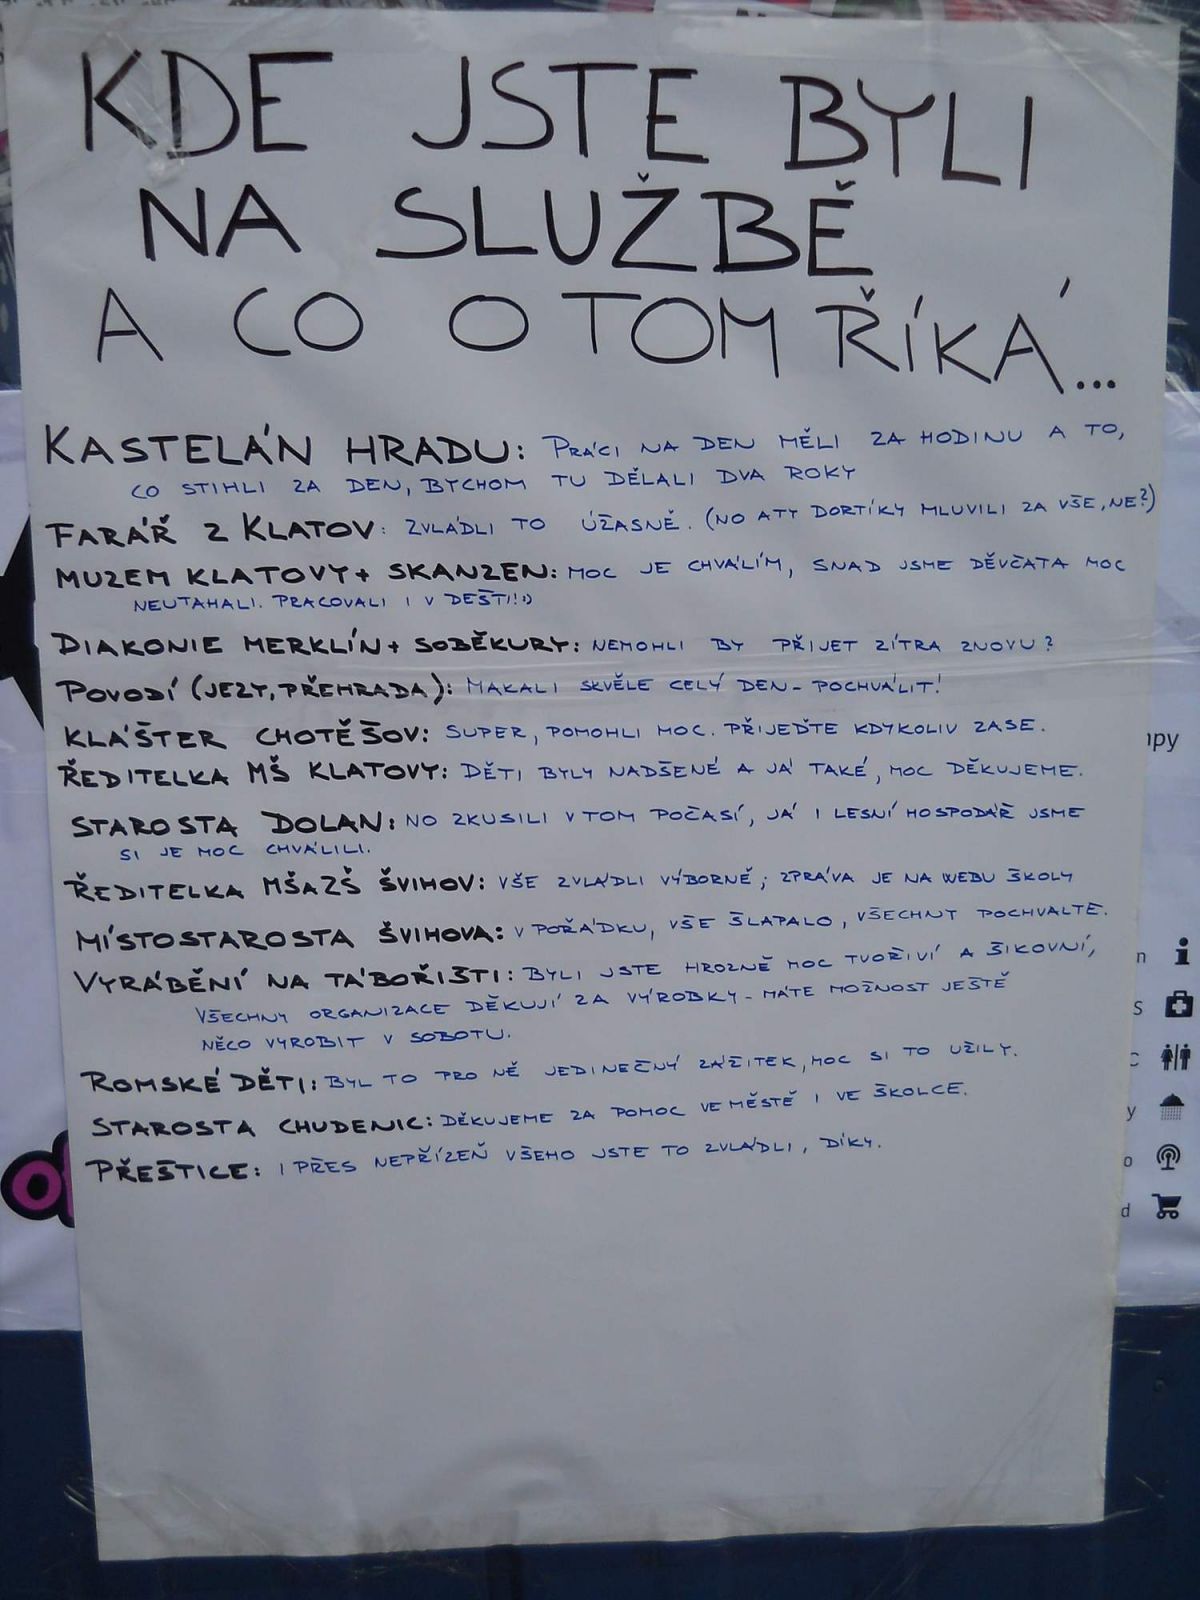 KDE JSTE BYLI
NA SLUŽBĚ
A CO O TOM ŘÍKÁ...
KASTELÁN HRADU: PRÁCI NA DEN MĚLI ZA HODINU A TO,
CO STIHLI ZA DEN, BYCHOM TU DĚLALI DVA ROKY
FARÁŘ Z KLATOV: ZVLÁDLI TO ÚŽASNĚ. (NO A TY DORTÍKY MLUVILI ZA VŠE, NE?)
MUZEM KLATOVY + SKANZEN: MOC JE CHVÁLÍM, SNAD JSME DĚVČATA MOC
NEUTAHALI. PRACOVALI I V DEŠTI!:)
DIAKONIE MERKLÍN + SOBĚKURY: NEMOHLI BY PŘIJET ZÍTRA ZNOVU?
POVODÍ (JEZY, PŘEHRADA): MAKALI SKVĚLE CELÝ DEN - POCHVÁLIT!
KLÁŠTER CHOTĚŠOV: SUPER, POMOHLI MOC. PŘIJEĎTE KDYKOLIV ZASE.
ŘEDITELKA MŠ KLATOVY: DĚTI BYLY NADŠENÉ A JÁ TAKÉ, MOC DĚKUJEME.
STAROSTA DOLAN: NO ZKUSILI V TOM POČASÍ, JÁ I LESNÍ HOSPODÁŘ JSME
SI JE MOC CHVÁLILI.
ŘEDITELKA MŠ A ZŠ ŠVIHOV: VŠE ZVLÁDLI VÝBORNĚ; ZPRÁVA JE NA WEBU ŠKOLY
MÍSTOSTAROSTA ŠVIHOVA: V POŘÁDKU, VŠE ŠLAPALO, VŠECHNY POCHVALTE.
VYRÁBĚNÍ NA TÁBOŘIŠTI: BYLI JSTE HROZNĚ MOC TVOŘIVÍ A ŠIKOVNÍ,
VŠECHNY ORGANIZACE DĚKUJÍ ZA VÝROBKY - MÁTE MOŽNOST JEŠTĚ
NĚCO VYROBIT V SOBOTU.
ROMSKÉ DĚTI: BYL TO PRO NĚ JEDINEČNÝ ZÁŽITEK, MOC SI TO UŽILY.
STAROSTA CHUDENIC: DĚKUJEME ZA POMOC VE MĚSTĚ I VE ŠKOLCE.
PŘEŠTICE: I PŘES NEPŘÍZEŇ VŠEHO JSTE TO ZVLÁDLI, DÍKY.